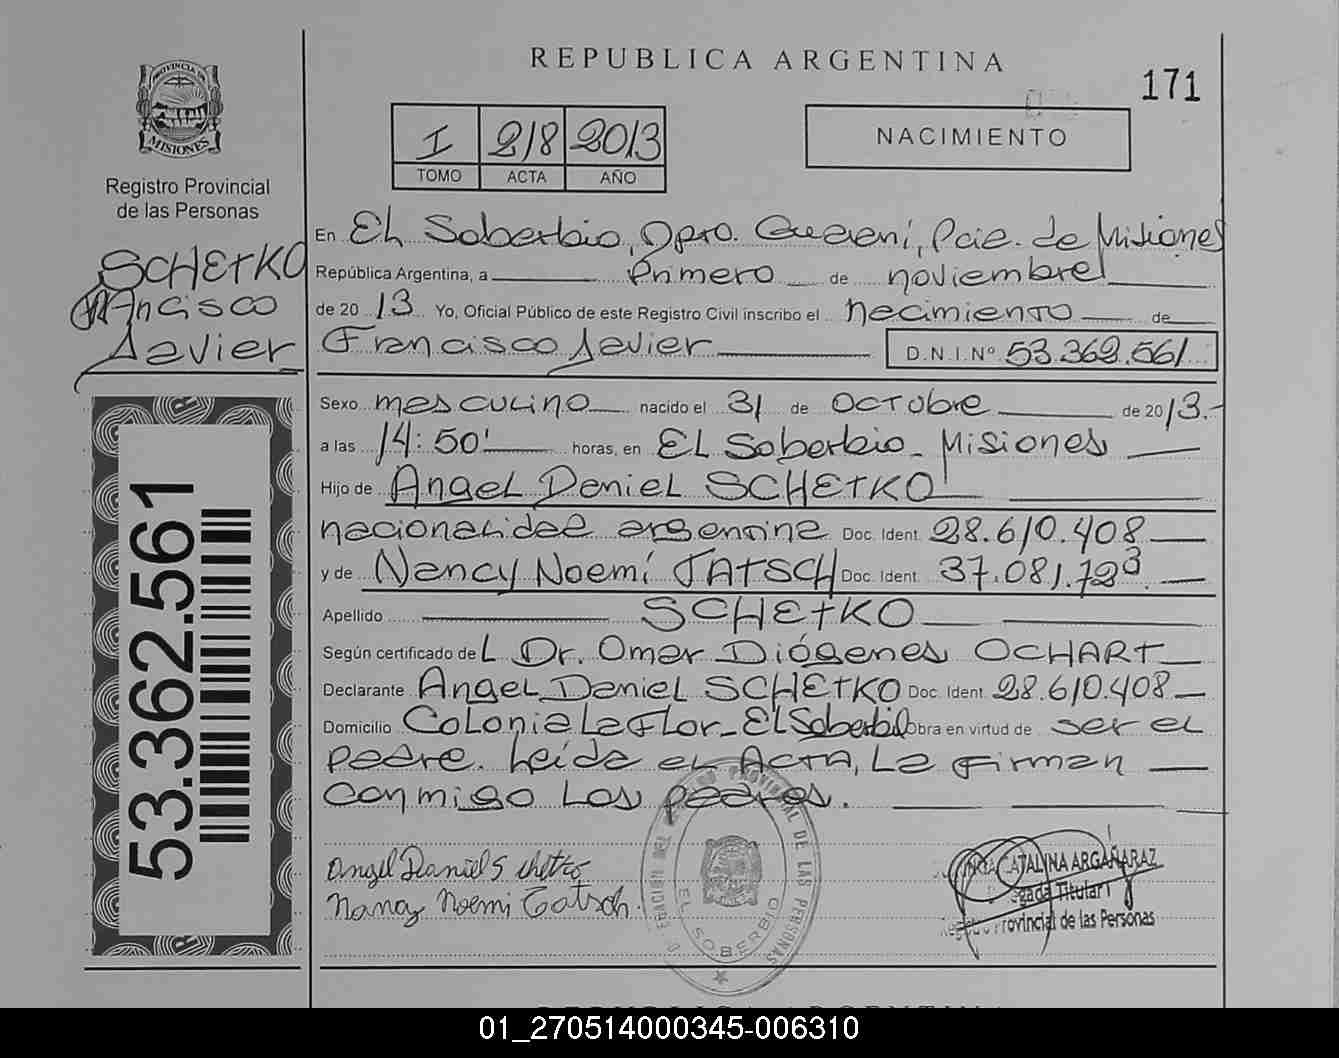 REPUBLICA ARGENTINA
171
PROVINCIA DE
MISIONES
Registro Provincial
de las Personas
I 218 2013
TOMO ACTA AÑO
NACIMIENTO
SCHETKO
Francisco
Javier
53.362.561
En El Soberbio, Dpto. Guaraní, Pcia. de Misiones
República Argentina, a Primero de noviembre
de 2013 Yo, Oficial Público de este Registro Civil inscribo el nacimiento de
Francisco Javier D.N.I.Nº 53.362.561
Sexo masculino nacido el 31 de octubre de 2013.-
a las 14:50' horas, en El Soberbio - Misiones
Hijo de Angel Daniel SCHETKO
nacionalidad argentina Doc. Ident. 28.610.408
y de Nancy Noemí TATSCH Doc. Ident. 37.081.723
Apellido SCHETKO
Según certificado del Dr. Omar Diógenes OCHART
Declarante Angel Daniel SCHETKO Doc. Ident. 28.610.408
Domicilio Colonia La Flor - El Soberbio Obra en virtud de ser el
padre. Leída el Acta, La firman
conmigo los padres.
Angel Daniel Schetko
Nancy Noemi Tatsch
CATALINA ARGAÑARAZ
Titular
Provincial de las Personas
PROVINCIAL DE LAS PERSONAS
EL SOBERBIO
REPUBLICA ARGENTINA
01_270514000345-006310